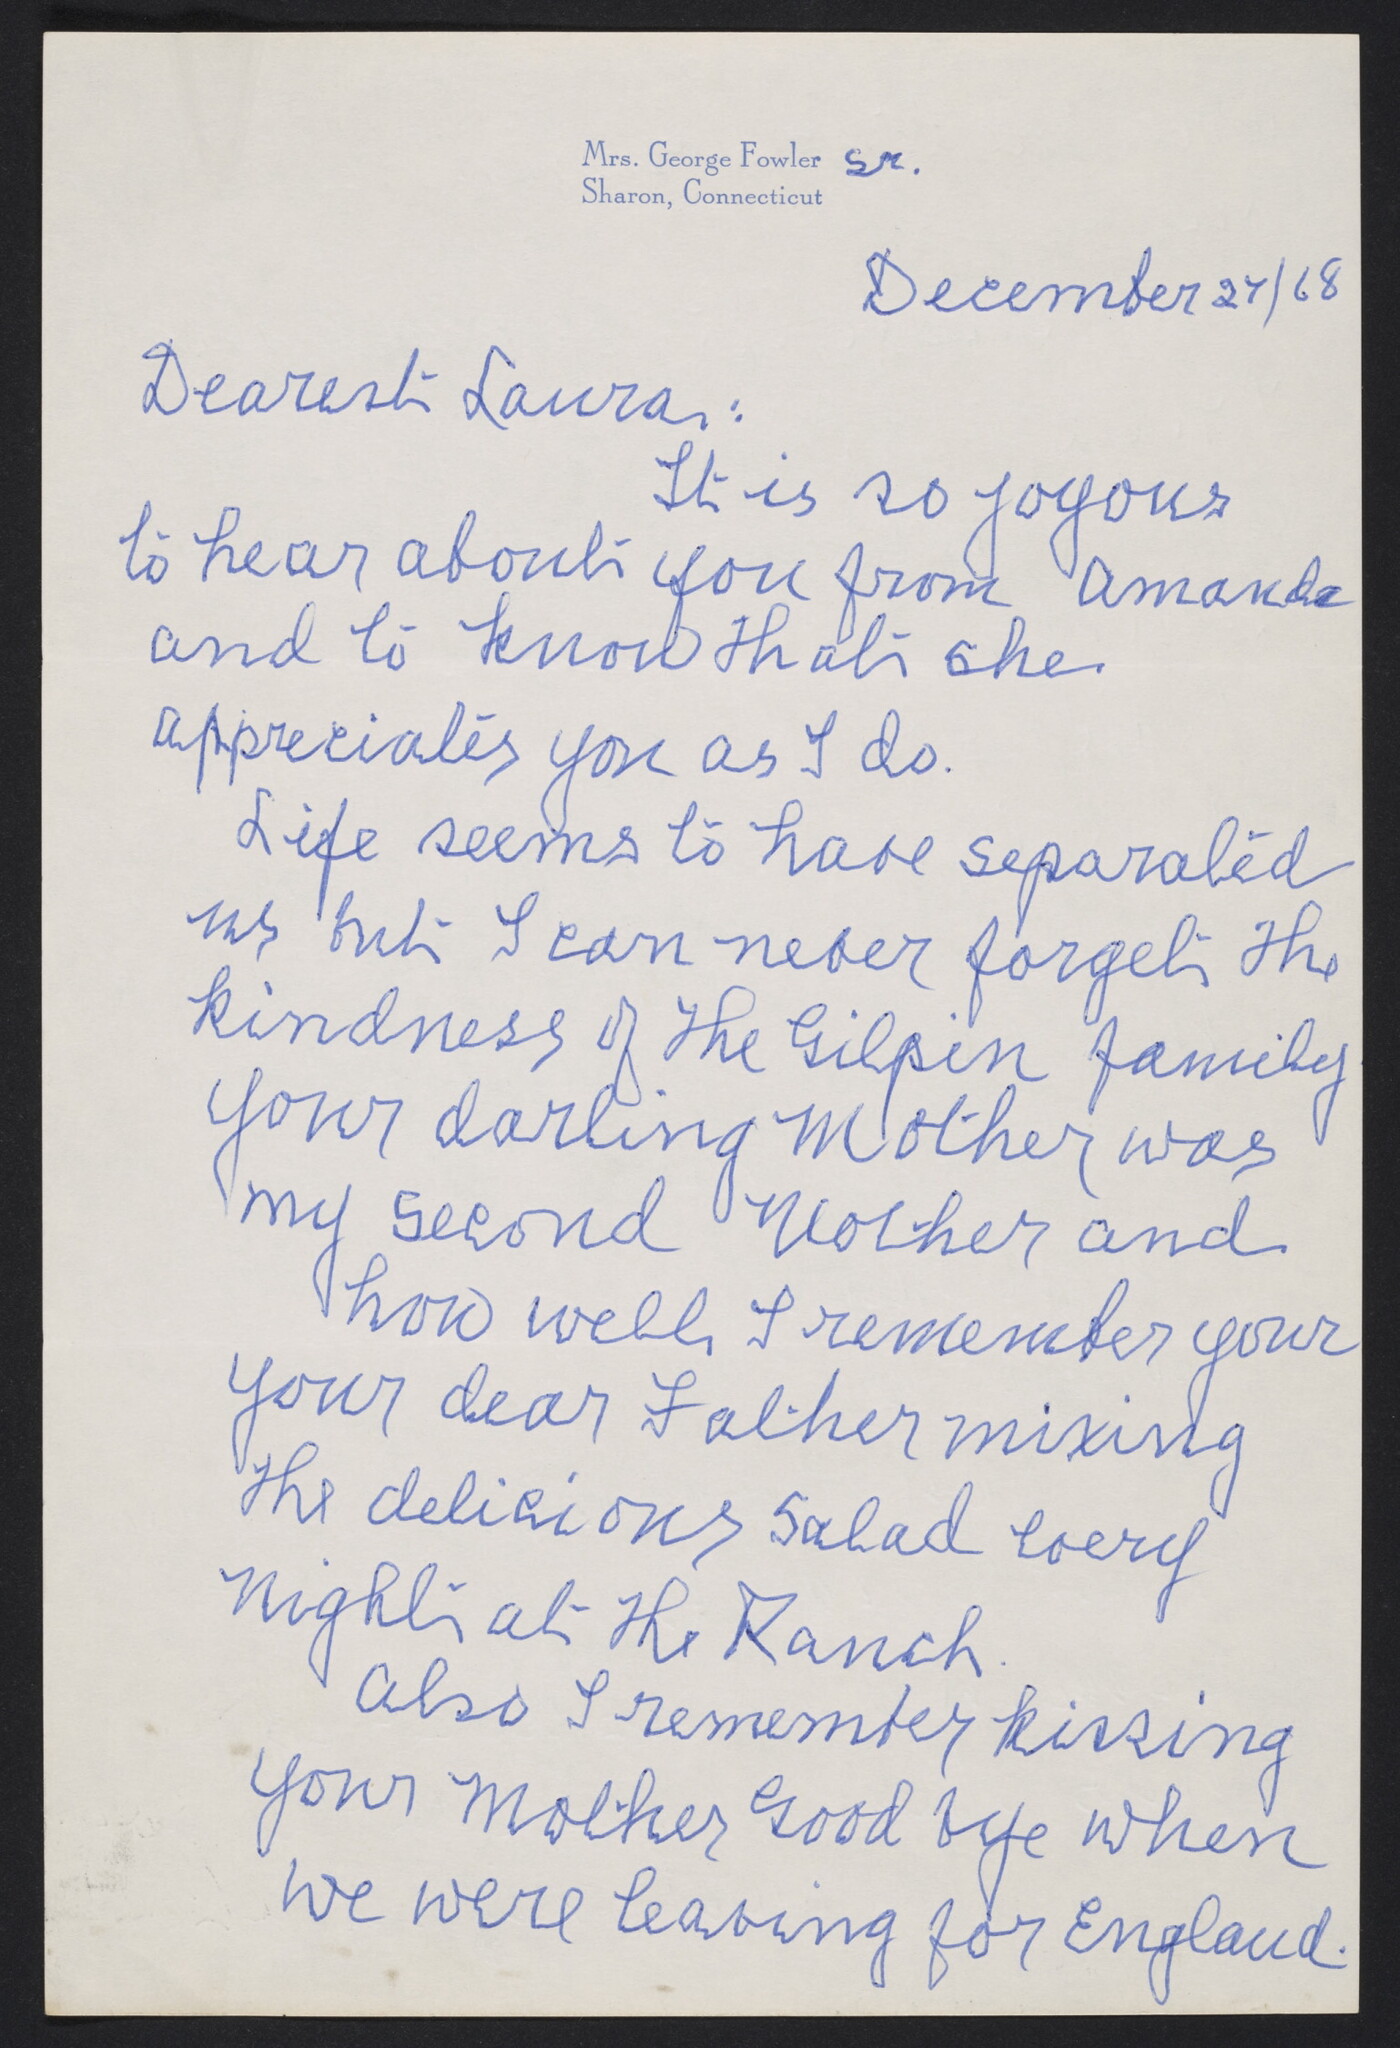 Mrs. George Fowler Sr.
Sharon, Connecticut
December 27/68
Dearest Laura:
It is so joyous
to hear about you from Amanda
and to know that she
appreciates you as I do.
Life seems to have separated
us but I can never forget the
kindness of the Gilpin family
Your darling Mother was
my second Mother and
how well I remember your
your dear Father mixing
the delicious salad every
night at the Ranch.
Also I remember kissing
your Mother Good bye when
we were leaving for England.